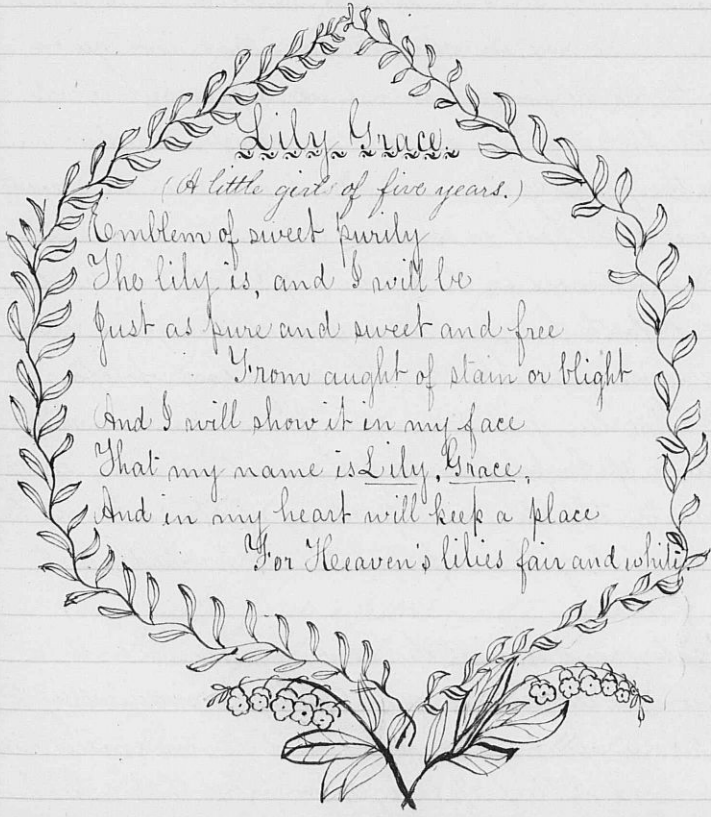 Lily Grace.
(A little girl of five years.)
Emblem of sweet purity
The lily is, and I will be
Just as pure and sweet and free
From aught of stain or blight
And I will show it in my face
That my name is Lily, Grace,
And in my heart will keep a place
For Heaven's lilies fair and white